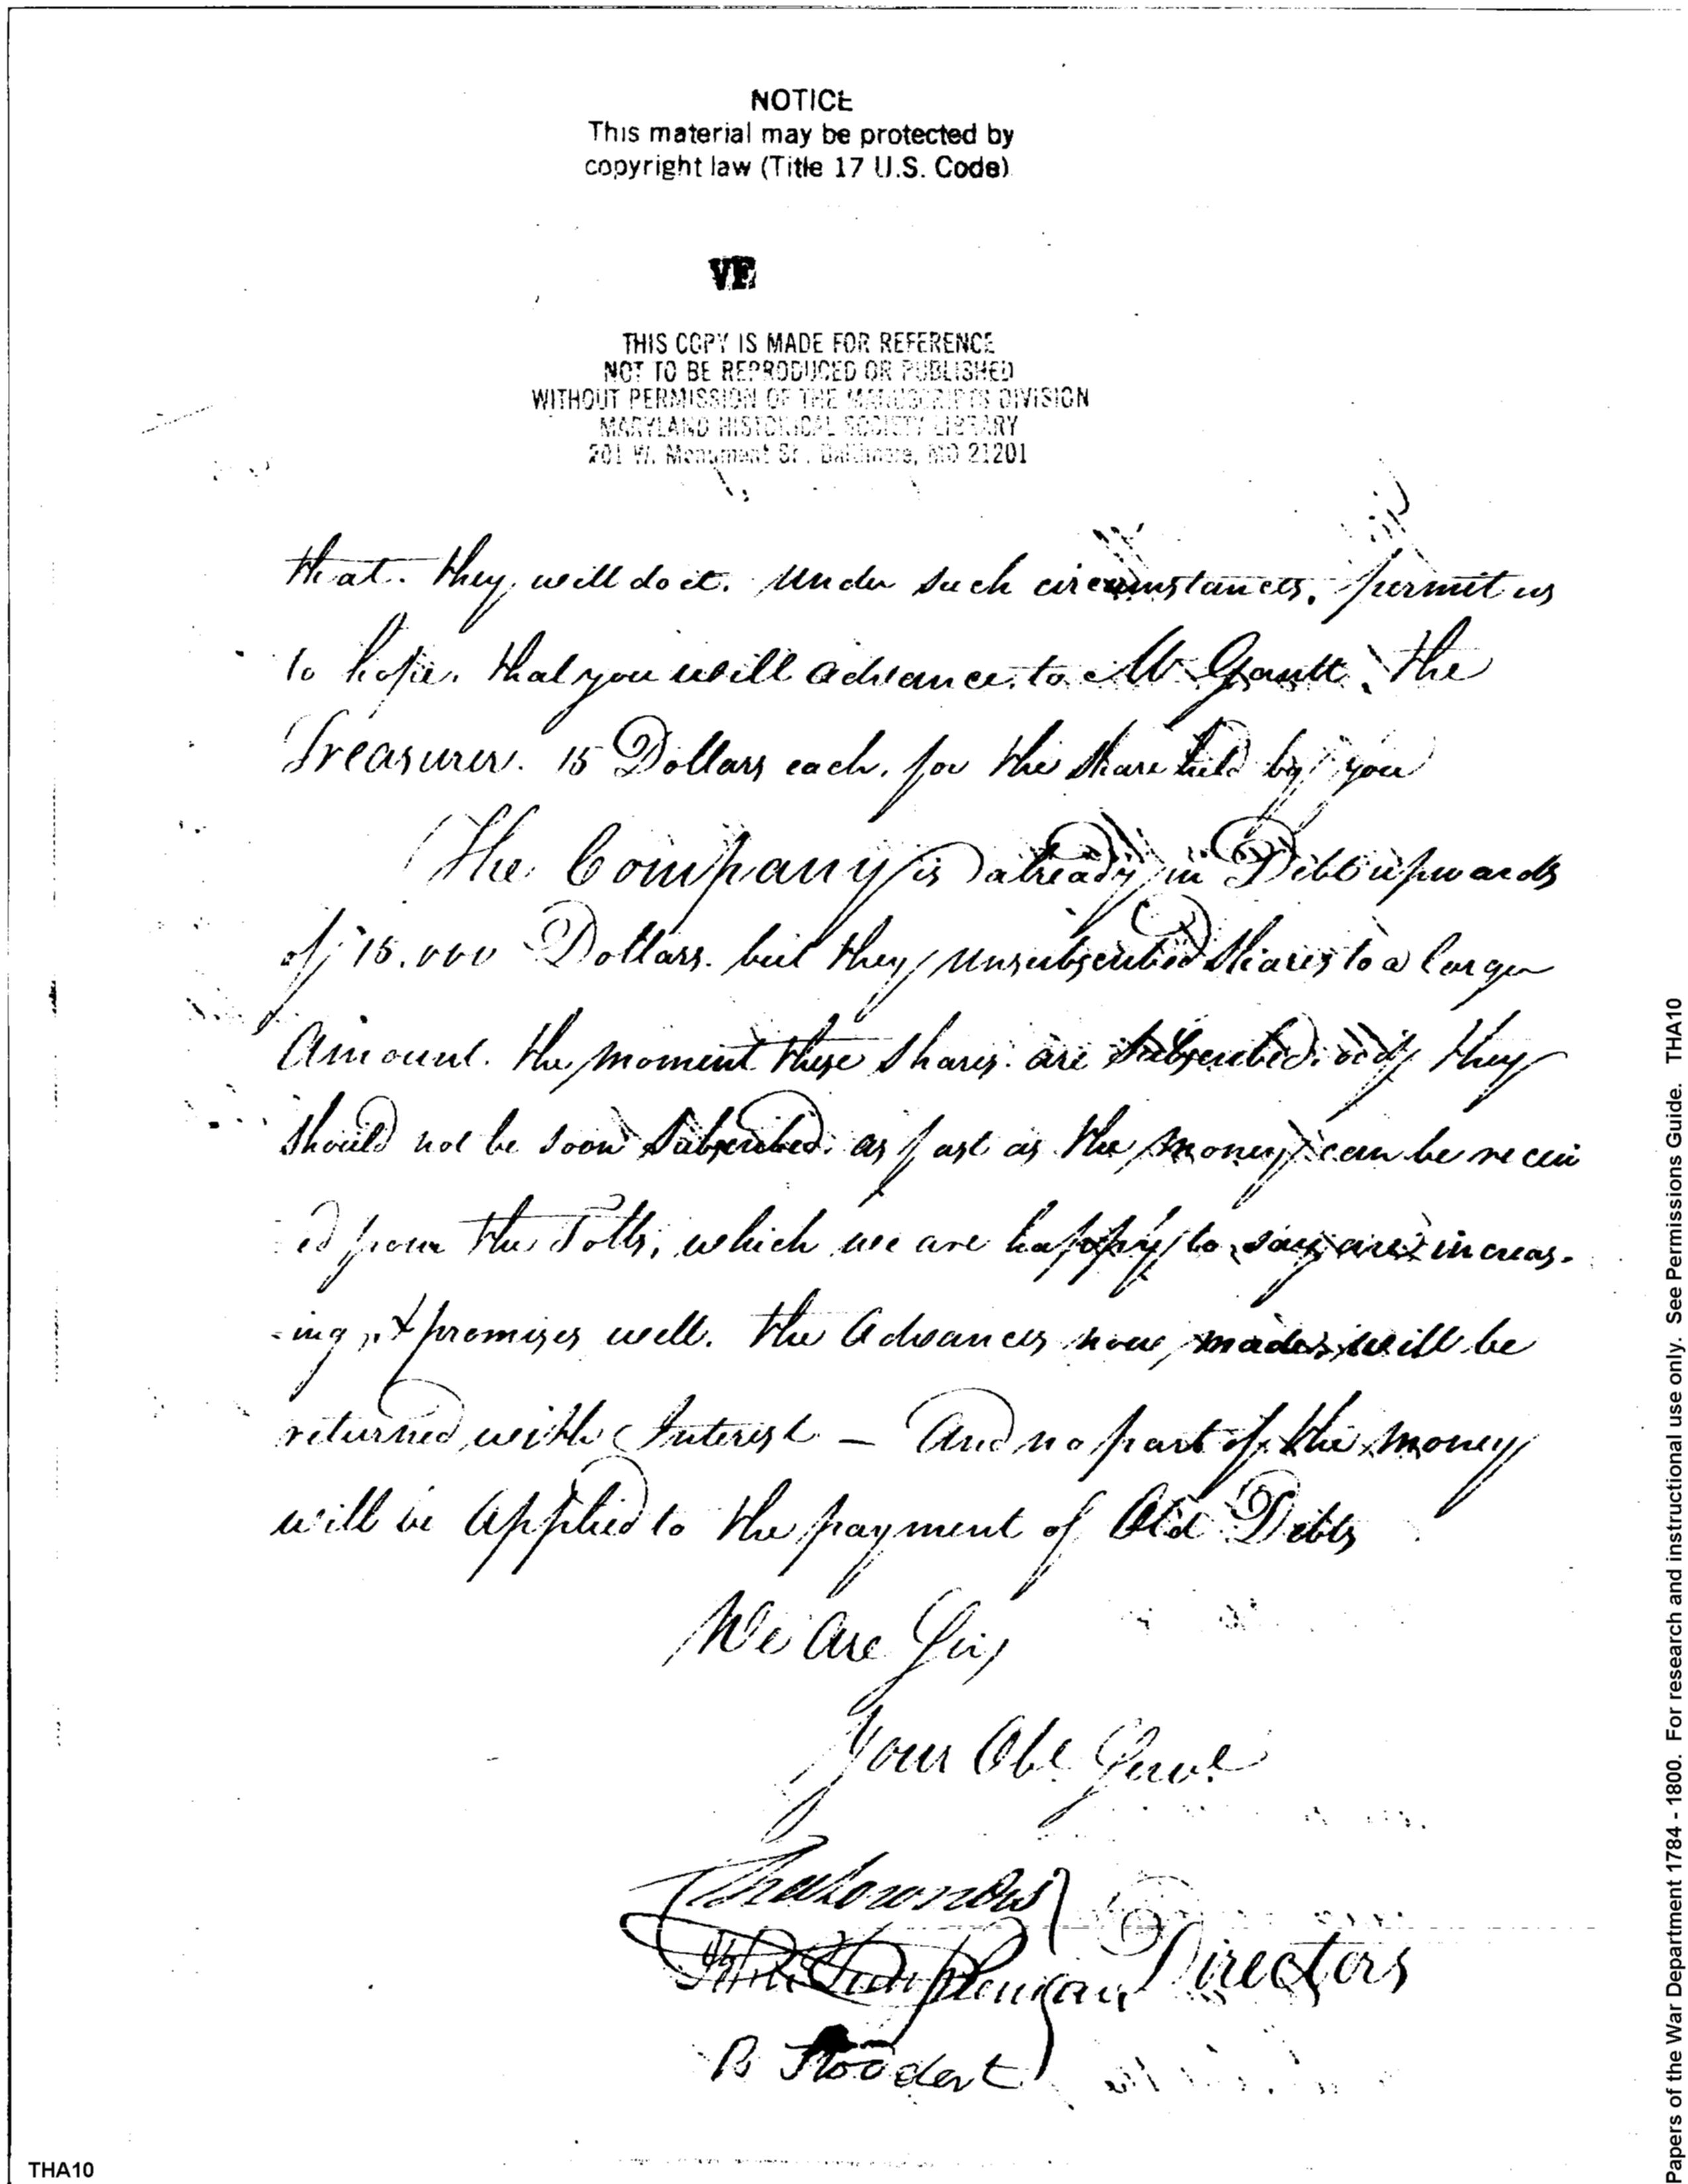 NOTICE
This material may be protected by
copyright law (Title 17 U.S. Code)
VF
THIS COPY IS MADE FOR REFERENCE
NOT TO BE REPRODUCED OR PUBLISHED
WITHOUT PERMISSION OF THE MANUSCRIPTS DIVISION
MARYLAND HISTORICAL SOCIETY LIBRARY
201 W. Monument St., Baltimore, MD 21201
that. they, will do it. Under such circumstances, permit us
to hope, that you will advance, to Mr Gantt, the
Treasurer. 15 Dollars each, for the share held by you
The Company is already in Debt upwards
of 15.000 Dollars. but they unsubscribed Shares to a larger
Amount. the moment these shares are Subscribed, or if they
should not be soon Subscribed, as fast as the money can be receiv
ed from the Tolls, which we are happy to say are increas-
-ing, & promises well. the Advances now made, will be
returned with Interest — And no part of the money
will be Applied to the payment of Old Debts
We Are Sir,
Your Obt Servt
Directors
Jno Templeman
B Stoddert
Papers of the War Department 1784 - 1800. For research and instructional use only. See Permissions Guide. THA10
THA10